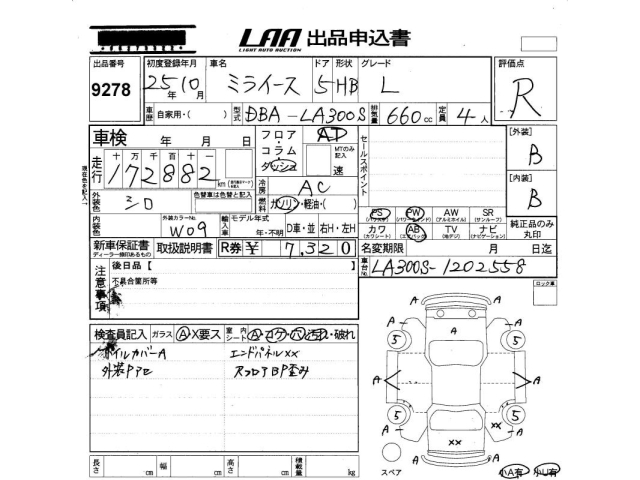 LAA 出品申込書
LIGHT AUTO AUCTION
出品番号 初度登録年月 車名 ドア 形状 グレード 評価点
9278 25年10月 ミライース 5 HB L R
車歴 自家用・( ) 型式 DBA-LA300S 排気量 660cc 定員 4人
車検 年 月 日 フロア・コラム・ダッシュ AT MTのみ記入 速 セールスポイント [外装] B
走行 十万千百十 172882 km
冷房 AC [内装] B
外装色 シロ 色替車は色替と記入 燃料 ガソリン・軽油・( )
PS PW AW SR
(パワステ) (パワーウィンド) (アルミホイル) (サンルーフ)
内装色 外装カラーNo. W09 輸入車 モデル年式 年・不明 D車・並 右H・左H
カワ AB TV ナビ 純正品のみ丸印
(カワシート) (エアバッグ) (地デジ) (ナビゲーション)
新車保証書 取扱説明書 R券 ¥ 7,320 名変期限 月 日迄
ディーラー捺印あるもの
車台No. LA300S-1202558
注意事項 後日品【 】
不具合箇所等
ロック車
検査員記入 ガラス A X要ス 室内 シート A・コゲ・穴・汚れ・破れ
ホイルカバーA エンドパネルXX
外装Pアセ スフロアBP歪み
A A A
5 A 5
A A
5 XX 5
A XX A
スペア A 小A有 小U有
長さ cm 幅 cm 高さ cm 積載量 kg